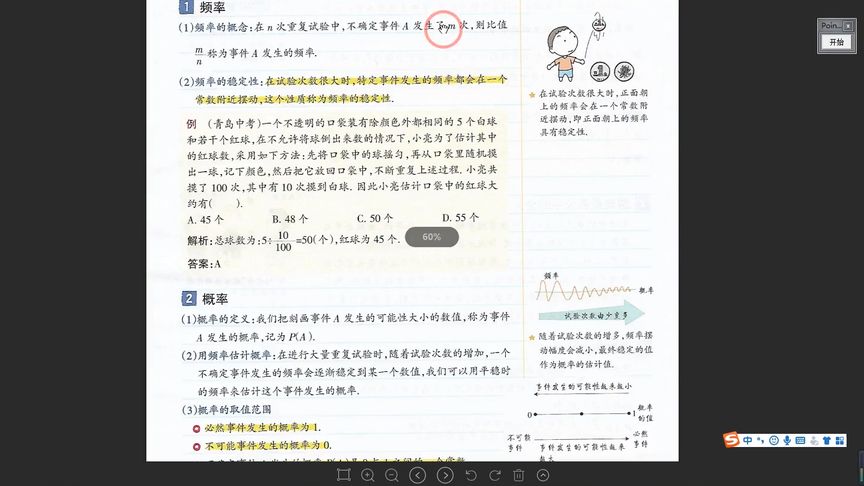 1 频率
(1)频率的概念:在 n 次重复试验中,不确定事件 A 发生了 m 次,则比值
m/n 称为事件 A 发生的频率.
(2)频率的稳定性:在试验次数很大时,特定事件发生的频率都会在一个
常数附近摆动,这个性质称为频率的稳定性.
例 (青岛中考)一个不透明的口袋装有除颜色外都相同的 5 个白球
和若干个红球,在不允许将球倒出来数的情况下,小亮为了估计其中
的红球数,采用如下方法:先将口袋中的球摇匀,再从口袋里随机摸
出一球,记下颜色,然后把它放回口袋中,不断重复上述过程. 小亮共
摸了 100 次,其中有 10 次摸到白球. 因此小亮估计口袋中的红球大
约有( ).
A. 45 个 B. 48 个 C. 50 个 D. 55 个
解析:总球数为:5÷10/100=50(个),红球为 45 个.
60%
答案:A
2 概率
(1)概率的定义:我们把刻画事件 A 发生的可能性大小的数值,称为事件
A 发生的概率,记为 P(A).
(2)用频率估计概率:在进行大量重复试验时,随着试验次数的增加,一个
不确定事件发生的频率会逐渐稳定到某一个数值,我们可以用平稳时
的频率来估计这个事件发生的概率.
(3)概率的取值范围
必然事件发生的概率为 1.
不可能事件发生的概率为 0.
在试验次数很大时,正面朝
上的频率会在一个常数附
近摆动,即正面朝上的频率
具有稳定性.
频率
概率
试验次数由少至多
随着试验次数的增多,频率摆
动幅度会减小,最终稳定的值
作为概率的估计值.
事件发生的可能性越来越小
0 1 概率
的值
不可能
事件
事件发生的可能性越来
越大
必然
事件
Poin...
开始
中